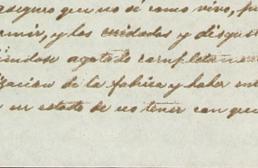 aseguro que no sé como vivo, pu
rmir, y los cuidados y disgus
iendose agotado completame
ización de la fabrica y haber
un estado de no tener con que